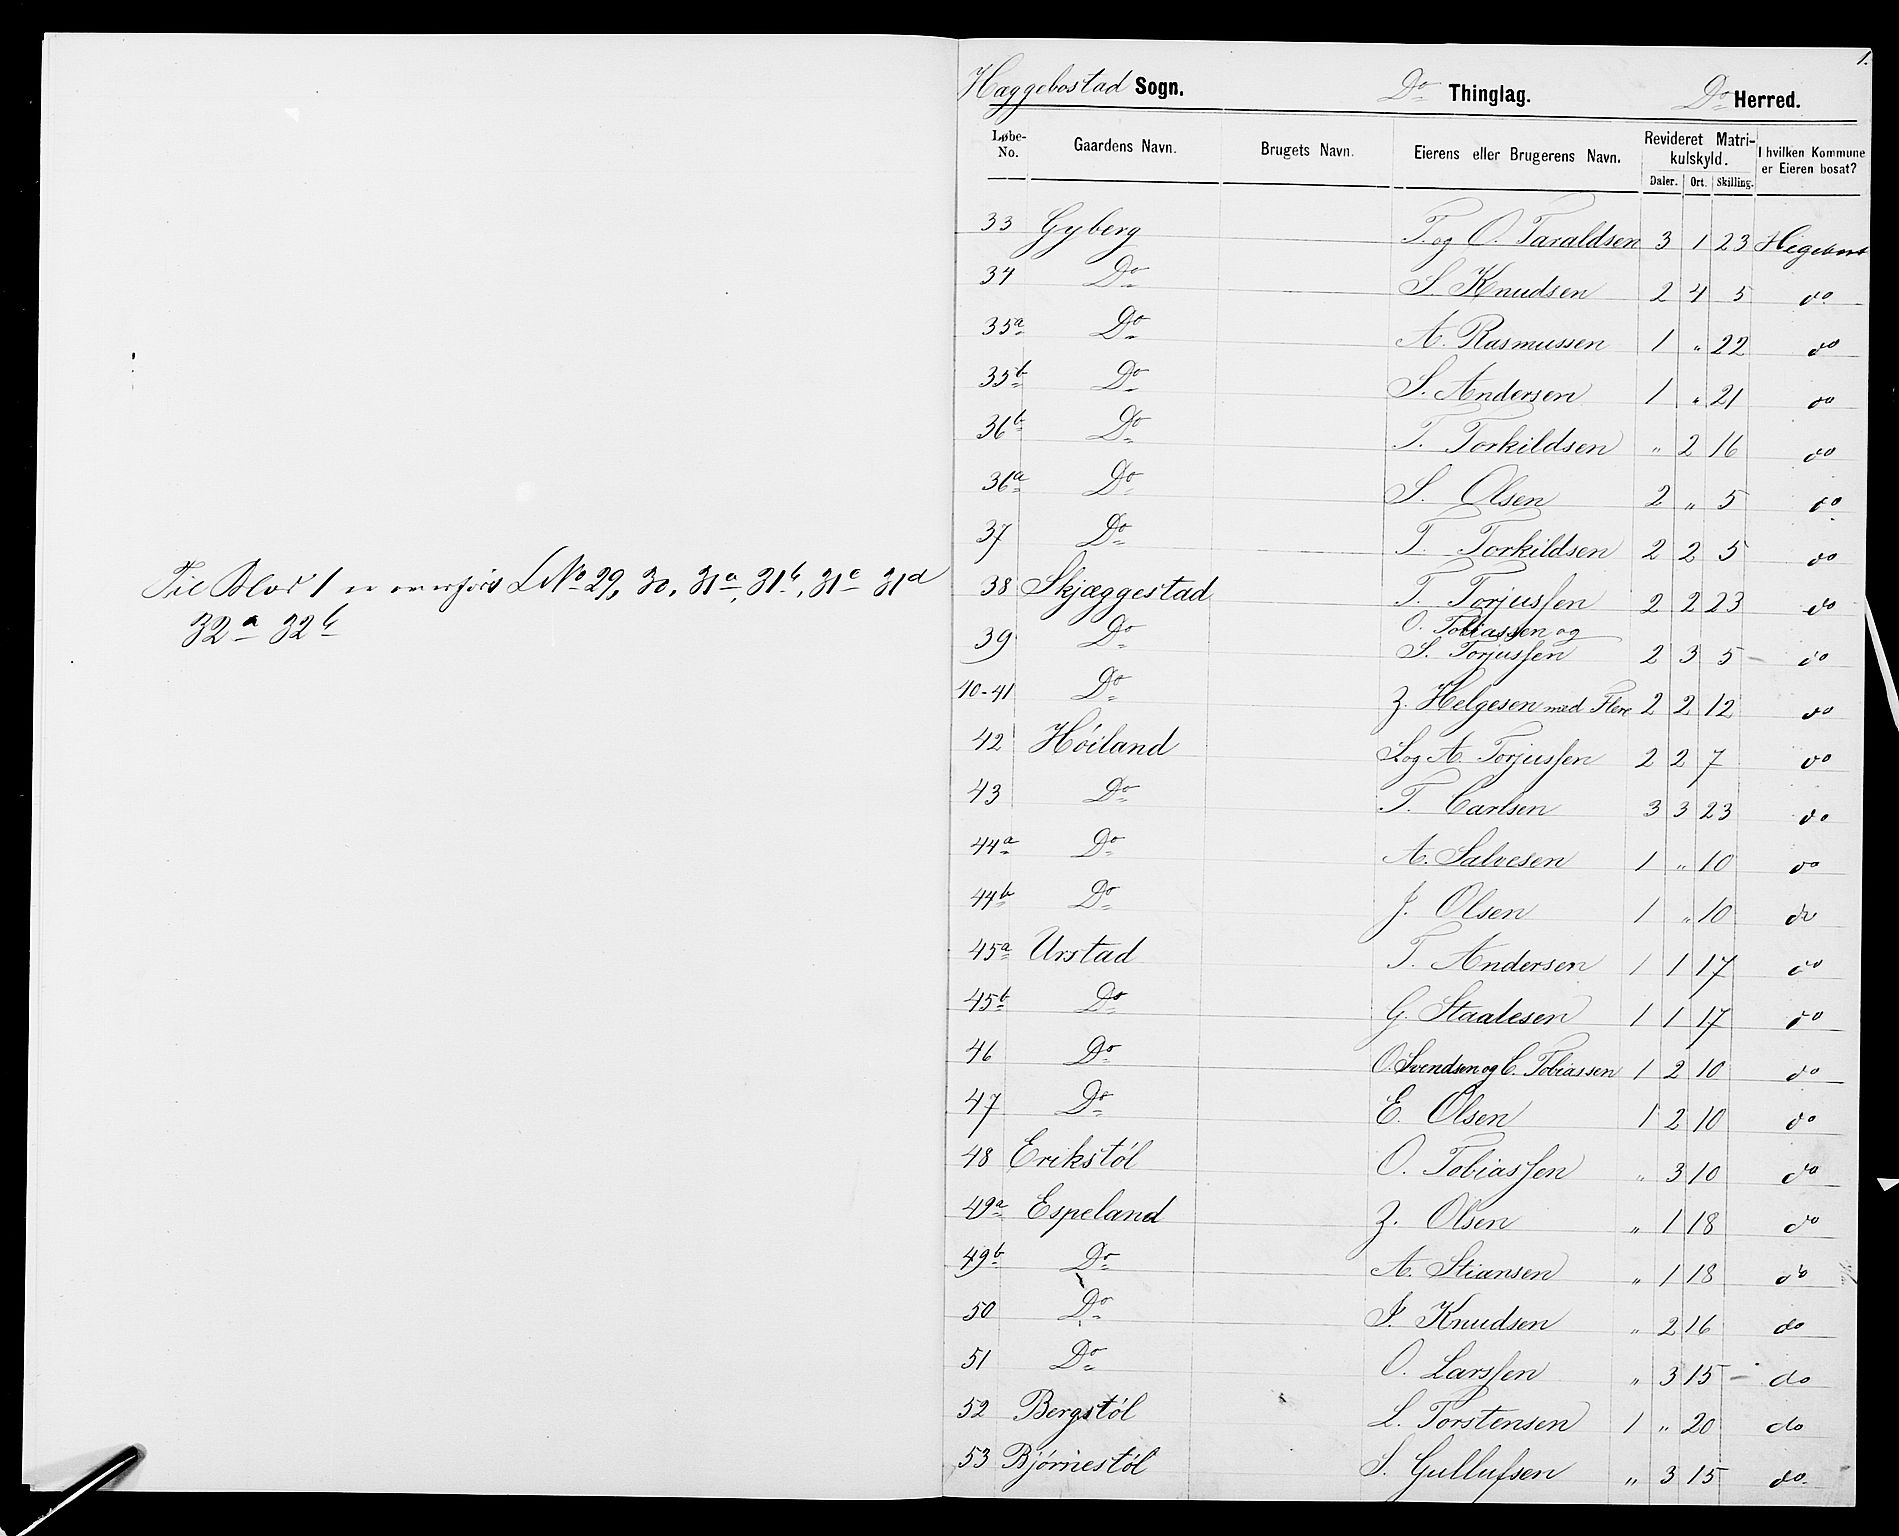 Til Blad 1 er overført LNo 29, 30, 31a, 31b, 31c 31d
32a 32b
1.
Hæggebostad Sogn. Do Thinglag. Do Herred.
Løbe-No. Gaardens Navn. Brugets Navn. Eierens eller Brugerens Navn. Revideret Matrikulskyld. Daler. Ort. Skilling. I hvilken Kommune er Eieren bosat?
33 Gyberg T. og O. Taraldsen 3 1 23
34 Do S. Knudsen 2 4 5 do
35a Do A. Rasmussen 1 " 22 do
35b Do S. Andersen 1 " 21 do
36b Do T. Torkildsen " 2 16 do
36a Do S. Olsen 2 " 5 do
37 Do T. Torkildsen 2 2 5 do
38 Skjæggestad T. Torjussen 2 2 23 do
39 Do O. Tobiassen og S. Torjussen 2 3 5 do
40-41 Do Z. Helgesen med Flere 2 2 12 do
42 Høiland S. og A. Torjussen 2 2 7 do
43 Do T. Carlsen 3 3 23 do
44a Do A. Salvesen 1 " 10 do
44b Do J. Olsen 1 " 10 do
45a Urstad T. Andersen 1 1 17 do
45b Do G. Staalesen 1 1 17 do
46 Do O. Svendsen og C. Tobiassen 1 2 10 do
47 Do E. Olsen 1 2 10 do
48 Erikstøl O. Tobiassen " 3 10 do
49a Espeland Z. Olsen " 1 18 do
49b Do A. Stiansen " 1 18 do
50 Do S. Knudsen " 2 16 do
51 Do O. Larssen " 3 15 do
52 Bergstøl L. Torstensen 1 " 20 do
53 Bjørnestøl S. Gullufsen " 3 15 do.